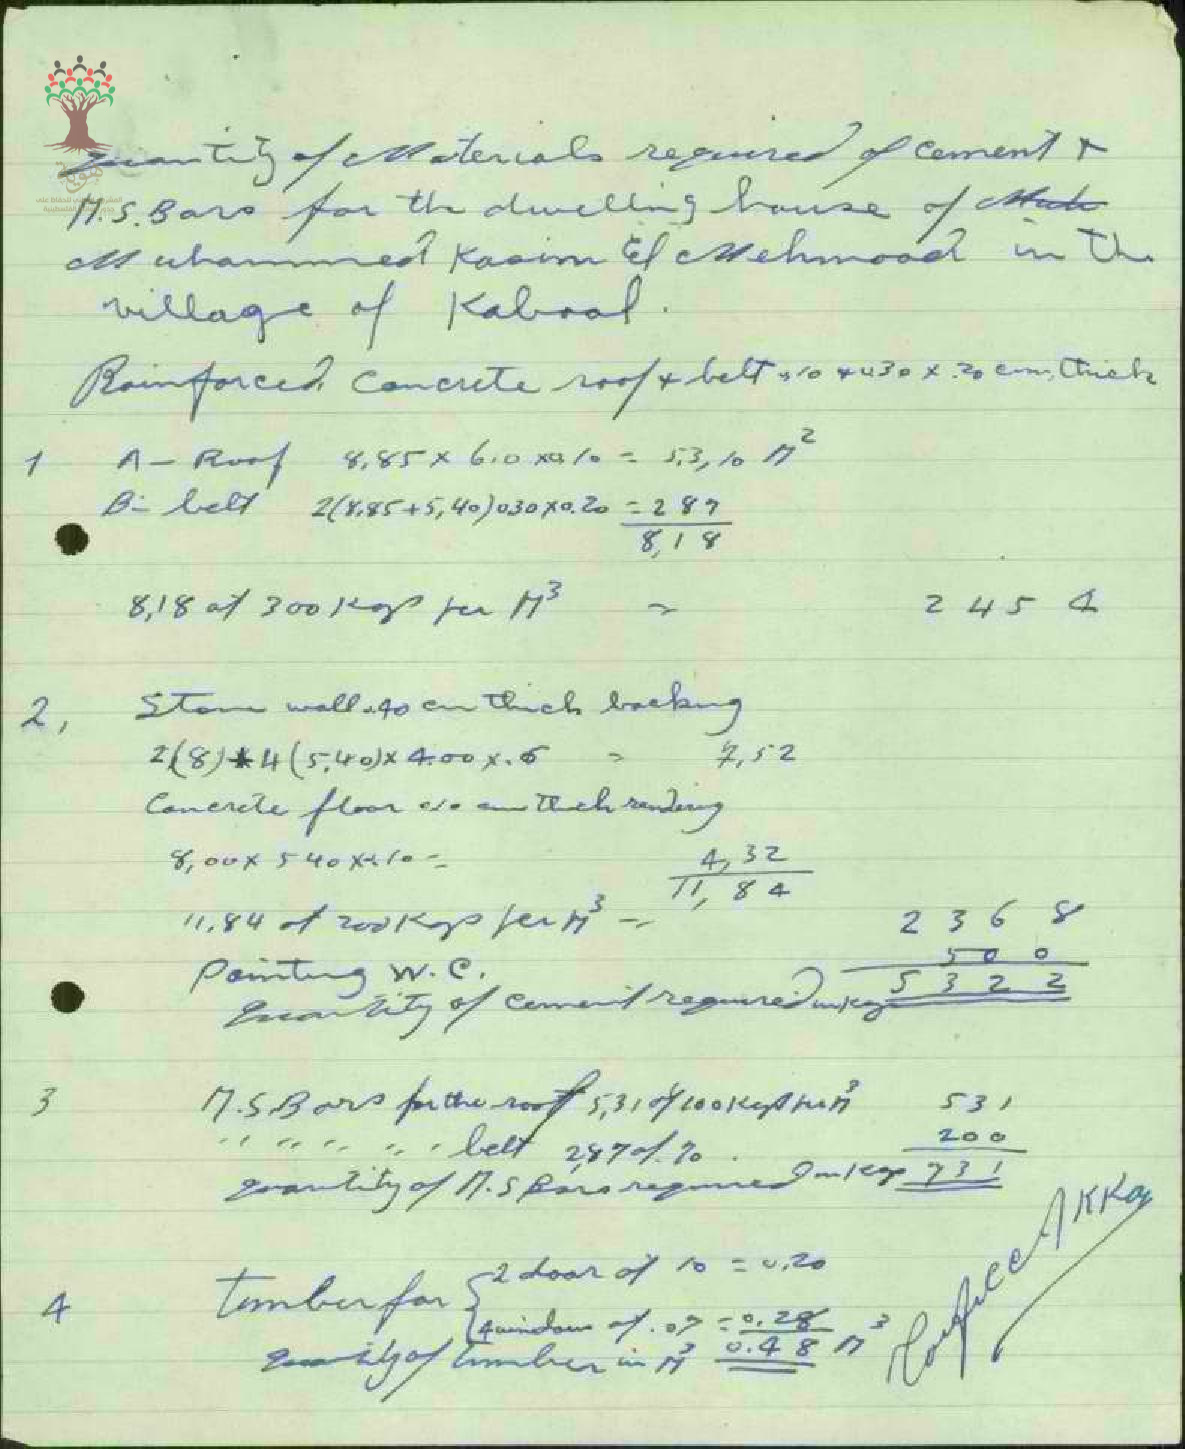 Quantity of Materials required of cement &
M.S. Bars for the dwelling house of
Muhammed Kasim El Mehmood in the
village of Kabool.
Reinforced Concrete roof & belt .10 & 0.30 x .20 cm. thick
1 A- Roof 8,85 x 6.0 x 0.10 = 5,3,10 M²
B- belt 2(8,85+5,40)030x0.20 = 287
8,18
8,18 at 300 Kgs per M³ = 2454
2, Stone wall .40 cm thick backing
2(8)+4(5,40)x4.00x.6 = 7,52
Concrete floor 0.10 cm thick rendering
8,00x540x0.10 = 4,32
11,84
11,84 at 200 Kgs per M³ = 2368
Painting W.C. 500
Quantity of cement required in Kgs 5322
3 M.S. Bars for the roof 5,31 at 100 Kgs per M³ 531
" " " " " belt 2,87 at 70. 200
Quantity of M.S Bars required in Kgs 731
4 Timber for 2 door at 10 = 0.20
4 windows at .07 = 0.28
Quantity of timber in M³ 0.48 M³